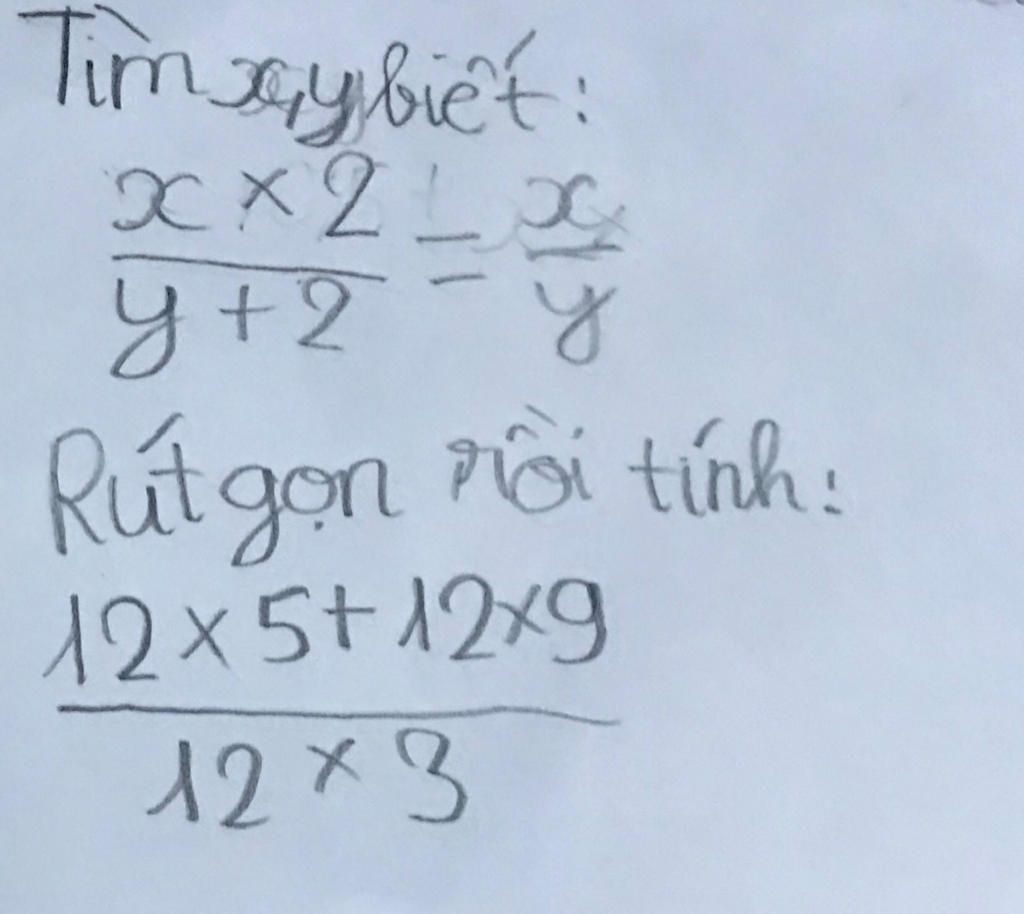 Tìm x,y biết:
x × 2 / y + 2 = x / y
Rút gọn rồi tính:
12 × 5 + 12 × 9
12 × 3